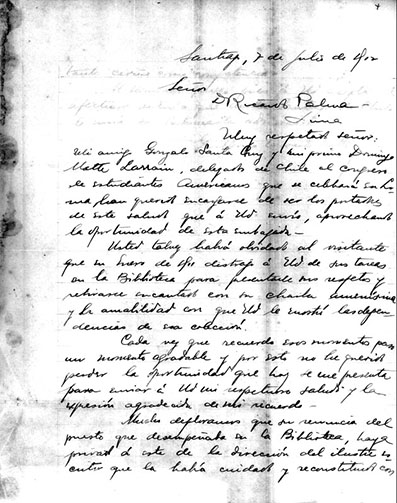 Santiago, 7 de Julio de 1912
Señor
D Ricardo Palma
Lima
Muy respetado señor:
Mi amigo Gonzalo Santa Cruz y mi primo Domingo
Matte Larrain, delegados de Chile al Congreso
de estudiantes Americanos que se celebrará en Li
ma, han querido encargarse de ser los portadores
de este saludo que á Ud envío, aprovechando
la oportunidad de esta embajada.
Usted talvez habrá olvidado al visitante
que en Enero de 1910 distrajo á Ud de sus tareas
en la Biblioteca para presentarle sus respetos y
retirarse encantado con su charla amenísima
y la amabilidad con que Ud le mostró las depen
dencias de esa colección.
Cada vez que recuerdo esos momentos paso
un momento agradable y por esto no he querido
perder la oportunidad que hoy se me presenta
para enviar á Ud mi respetuoso saludo y la
expresión agradecida de mi recuerdo.
Mucho deploramos que su renuncia del
puesto que desempeñaba en la Biblioteca, haya
privado á esta de la dirección del ilustre es
critor que la había cuidado y reconstituido con